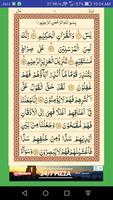 10:34 AM
بِسْمِ اللّٰهِ الرَّحْمٰنِ الرَّحِيْمِ
يٰسٓ وَالْقُرْاٰنِ الْحَكِيْمِ اِنَّكَ
لَمِنَ الْمُرْسَلِيْنَ عَلٰى صِرَاطٍ
مُّسْتَقِيْمٍ تَنْزِيْلَ الْعَزِيْزِ الرَّحِيْمِ
لِتُنْذِرَ قَوْمًا مَّآ اُنْذِرَ اٰبَآؤُهُمْ
فَهُمْ غٰفِلُوْنَ لَقَدْ حَقَّ الْقَوْلُ
عَلٰٓى اَكْثَرِهِمْ فَهُمْ لَا يُؤْمِنُوْنَ
اِنَّا جَعَلْنَا فِيْٓ اَعْنَاقِهِمْ اَغْلٰلًا
فَهِيَ اِلَى الْاَذْقَانِ فَهُمْ مُّقْمَحُوْنَ
24/7 PIZZA